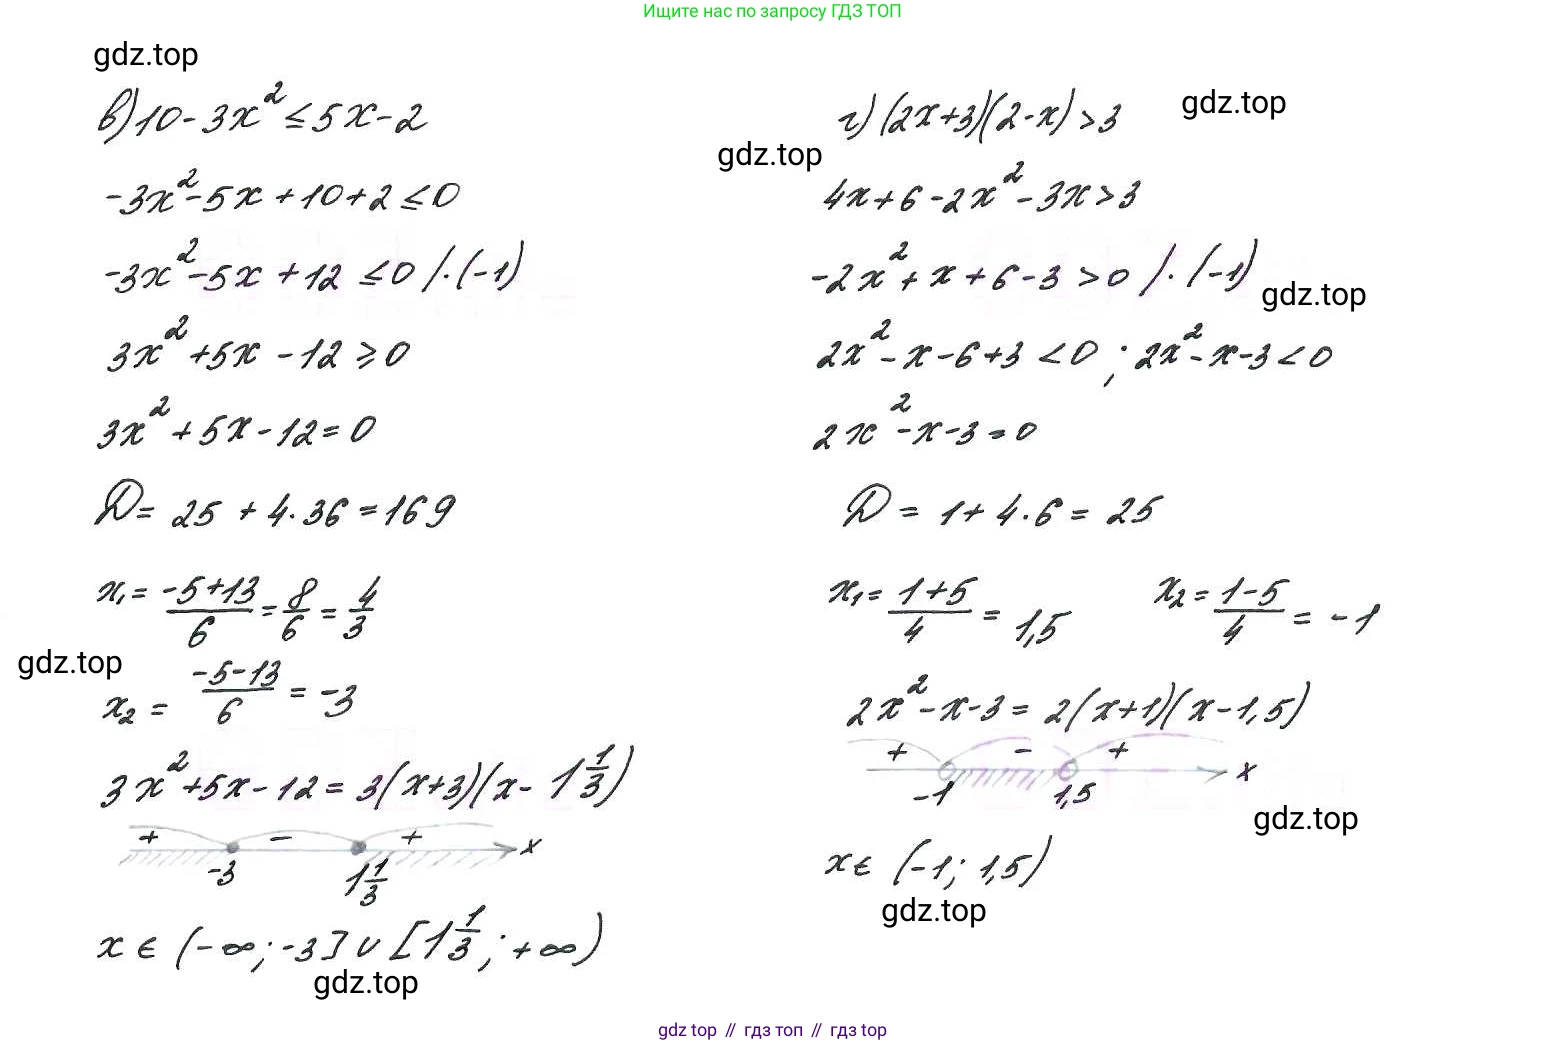 Ищите нас по запросу ГДЗ ТОП
gdz.top
в) 10 - 3x² ≤ 5x - 2
-3x² - 5x + 10 + 2 ≤ 0
-3x² - 5x + 12 ≤ 0 / · (-1)
3x² + 5x - 12 ≥ 0
3x² + 5x - 12 = 0
D = 25 + 4 · 36 = 169
x₁ = (-5+13)/6 = 8/6 = 4/3
gdz.top
x₂ = (-5-13)/6 = -3
3x² + 5x - 12 = 3(x+3)(x - 1 1/3)
+ - + x
-3 1 1/3
x ∈ (-∞; -3] ∪ [1 1/3; +∞)
gdz.top
г) (2x+3)(2-x) > 3
gdz.top
gdz.top
4x + 6 - 2x² - 3x > 3
-2x² + x + 6 - 3 > 0 / · (-1)
gdz.top
2x² - x - 6 + 3 < 0 ; 2x² - x - 3 < 0
2x² - x - 3 = 0
D = 1 + 4 · 6 = 25
x₁ = (1+5)/4 = 1,5 x₂ = (1-5)/4 = -1
2x² - x - 3 = 2(x+1)(x-1,5)
+ - + x
-1 1,5
gdz.top
x ∈ (-1; 1,5)
gdz.top
gdz top // гдз топ // gdz top